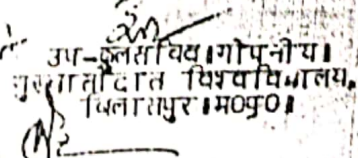 उप-कुलसचिव।गोपनीय।
गुरू घासीदास विश्वविद्यालय,
बिलासपुर।म०प्र०।